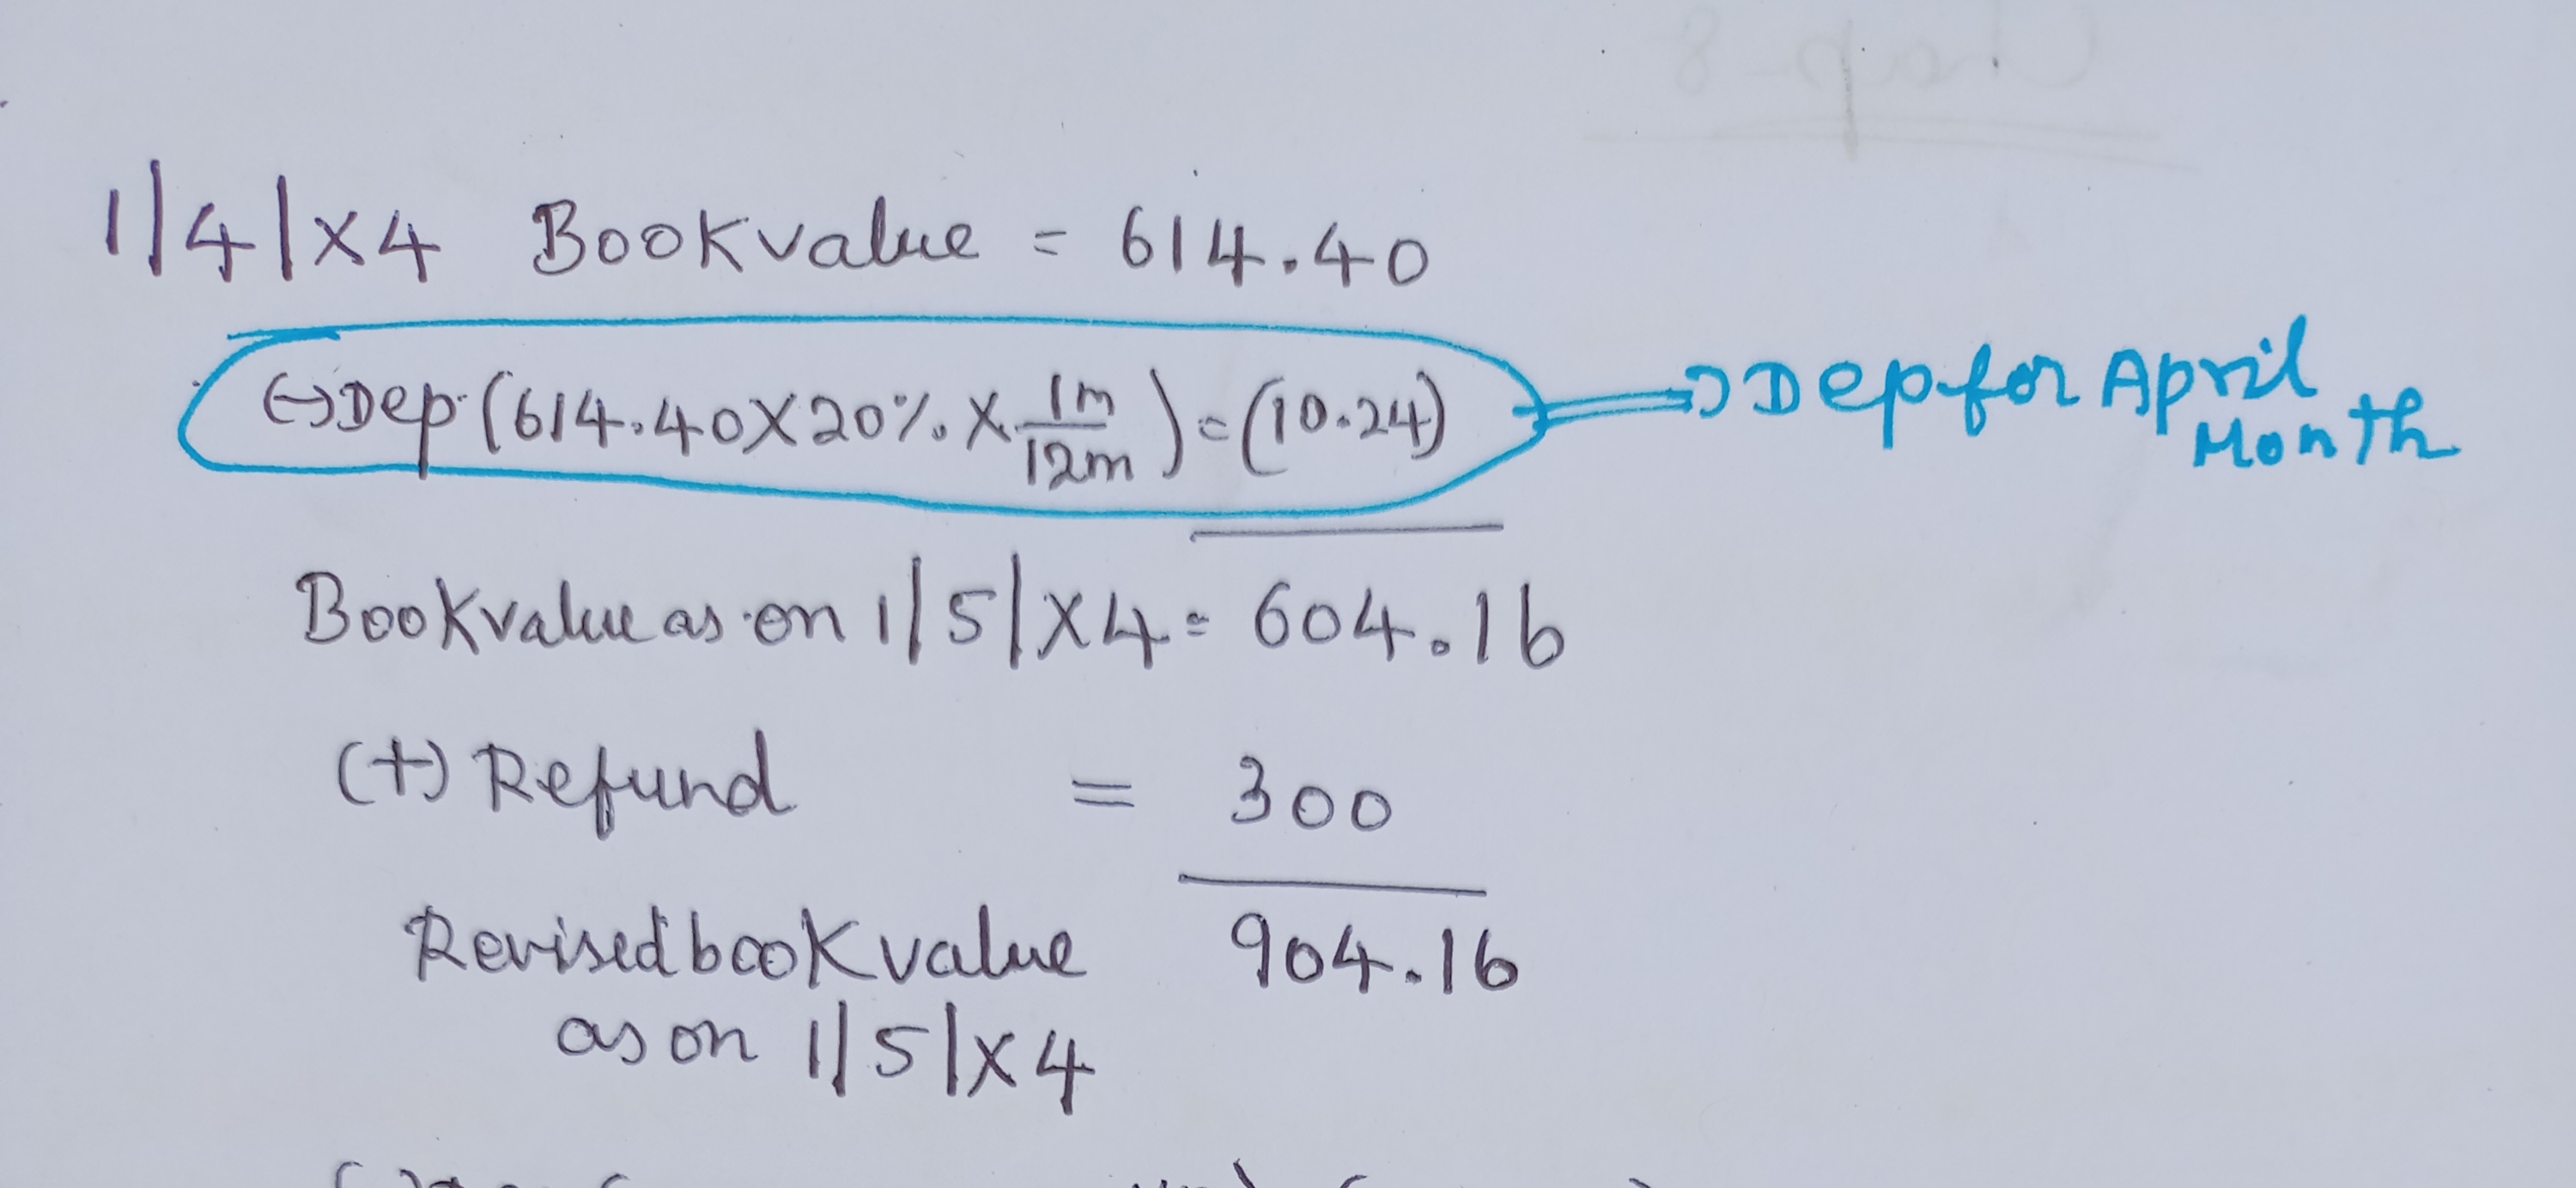 1/4/X4 Book value = 614.40
(-) Dep. (614.40 X 20% X 1m/12m) = (10.24) => Dep for April
Month
Book value as on 1/5/X4 = 604.16
(+) Refund = 300
Revised book value 904.16
as on 1/5/X4